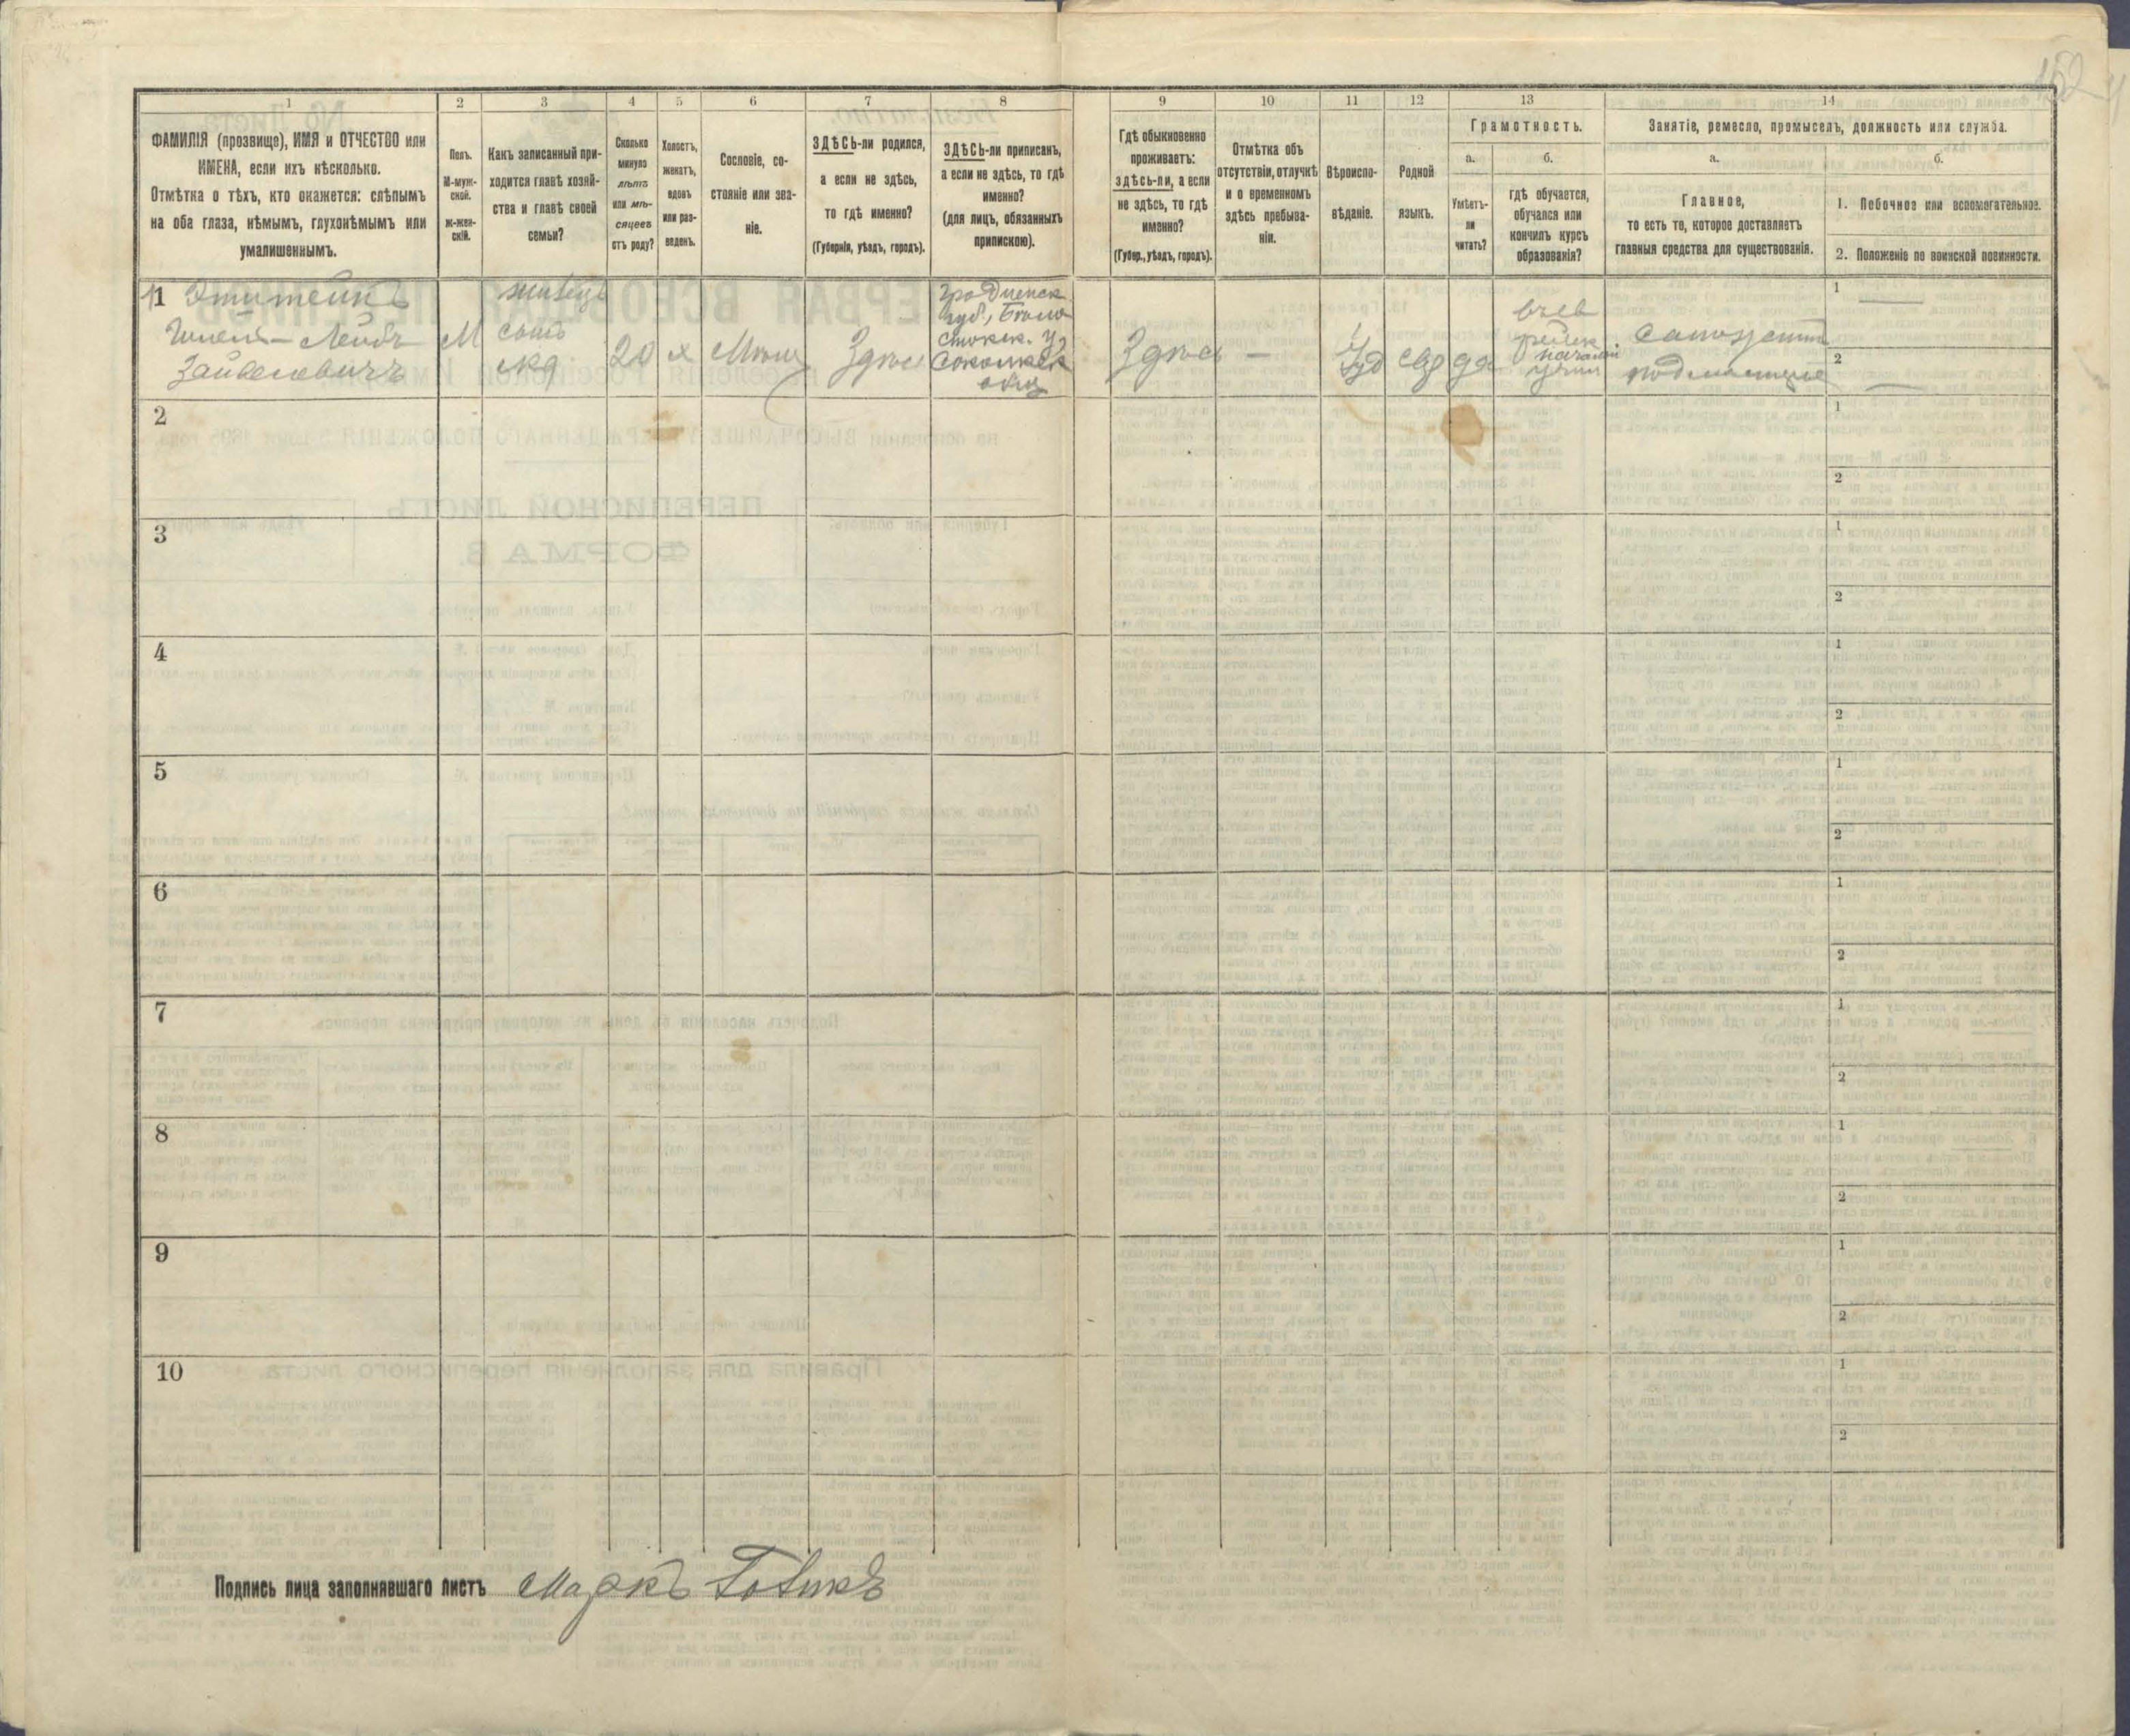 1
2
3
4
5
6
7
8
9
10
11
12
13
14
ФАМИЛІЯ (прозвище), ИМЯ и ОТЧЕСТВО или
ИМЕНА, если ихъ нѣсколько.
Отмѣтка о тѣхъ, кто окажется: слѣпымъ
на оба глаза, нѣмымъ, глухонѣмымъ или
умалишеннымъ.
Полъ.
М-муж-
ской.
ж-жен-
скій.
Какъ записанный при-
ходится главѣ хозяй-
ства и главѣ своей
семьи?
Сколько
минуло
лѣтъ
или мѣ-
сяцевъ
отъ роду?
Холостъ,
женатъ,
вдовъ
или раз-
веденъ.
Сословіе, со-
стояніе или зва-
ніе.
ЗДѢСЬ-ли родился,
а если не здѣсь,
то гдѣ именно?
(Губернія, уѣздъ, городъ).
ЗДѢСЬ-ли приписанъ,
а если не здѣсь, то гдѣ
именно?
(для лицъ, обязанныхъ
припискою).
Гдѣ обыкновенно
проживаетъ:
здѣсь-ли, а если
не здѣсь, то гдѣ
именно?
(Губер., уѣздъ, городъ).
Отмѣтка объ
отсутствіи, отлучкѣ
и о временномъ
здѣсь пребыва-
ніи.
Вѣроиспо-
вѣданіе.
Родной
языкъ.
Грамотность.
а.
Умѣетъ-
ли
читать?
б.
гдѣ обучается,
обучался или
кончилъ курсъ
образованія?
Занятіе, ремесло, промыселъ, должность или служба.
а.
Главное,
то есть то, которое доставляетъ
главныя средства для существованія.
б.
1. Побочное или вспомогательное.
2. Положеніе по воинской повинности.
1
Лейбъ
М
жилецъ
сынъ
20
х
Мѣщ
Здѣсь
Гродненск
губ., Бѣло
стокск. у
Сокольск
Здѣсь
—
Іуд
евр
да
еврейск.
начальн
сапожный
подмастерье
1
2
2
1
2
3
1
2
4
1
2
5
1
2
6
1
2
7
1
2
8
1
2
9
1
2
10
1
2
Подпись лица заполнявшаго листъ Маркъ